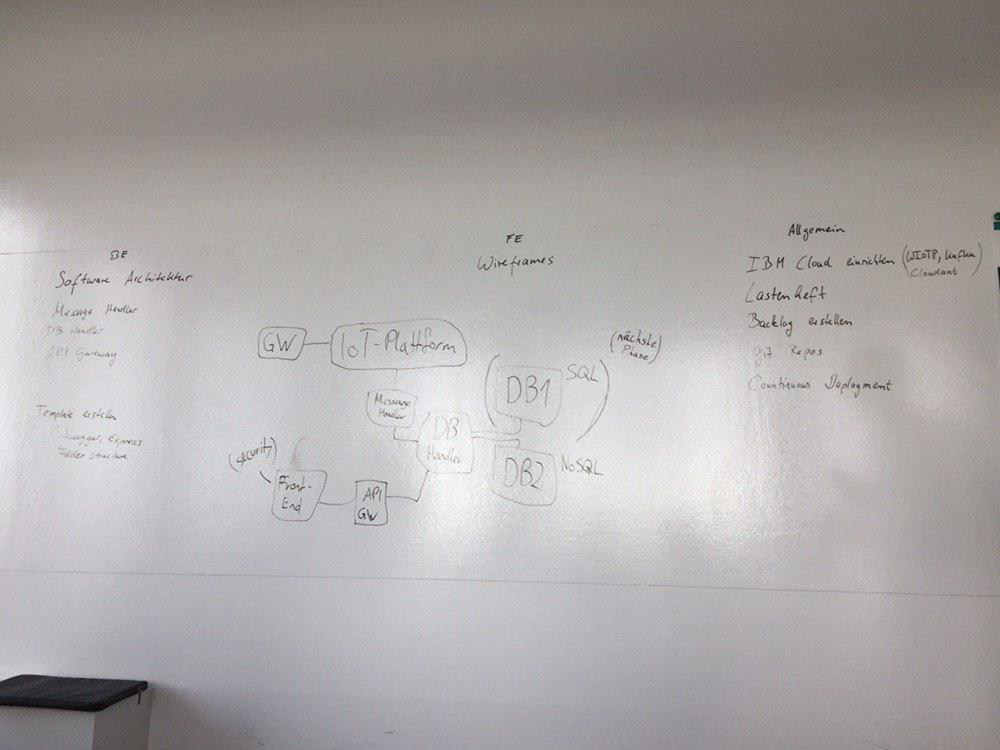 BE
Software Architektur
Message Handler
DB Handler
API Gateway
Template erstellen
Swagger, Express
Folder structure
FE
Wireframes
GW
IoT-Plattform
Message
Handler
DB
Handler
(nächste
Phase)
DB1
SQL
DB2
NoSQL
(security)
Front-
End
API
GW
Allgemein
IBM Cloud einrichten (WIoTP, Kafka
Cloudant)
Lastenheft
Backlog erstellen
git Repos
Countinuous Deployment